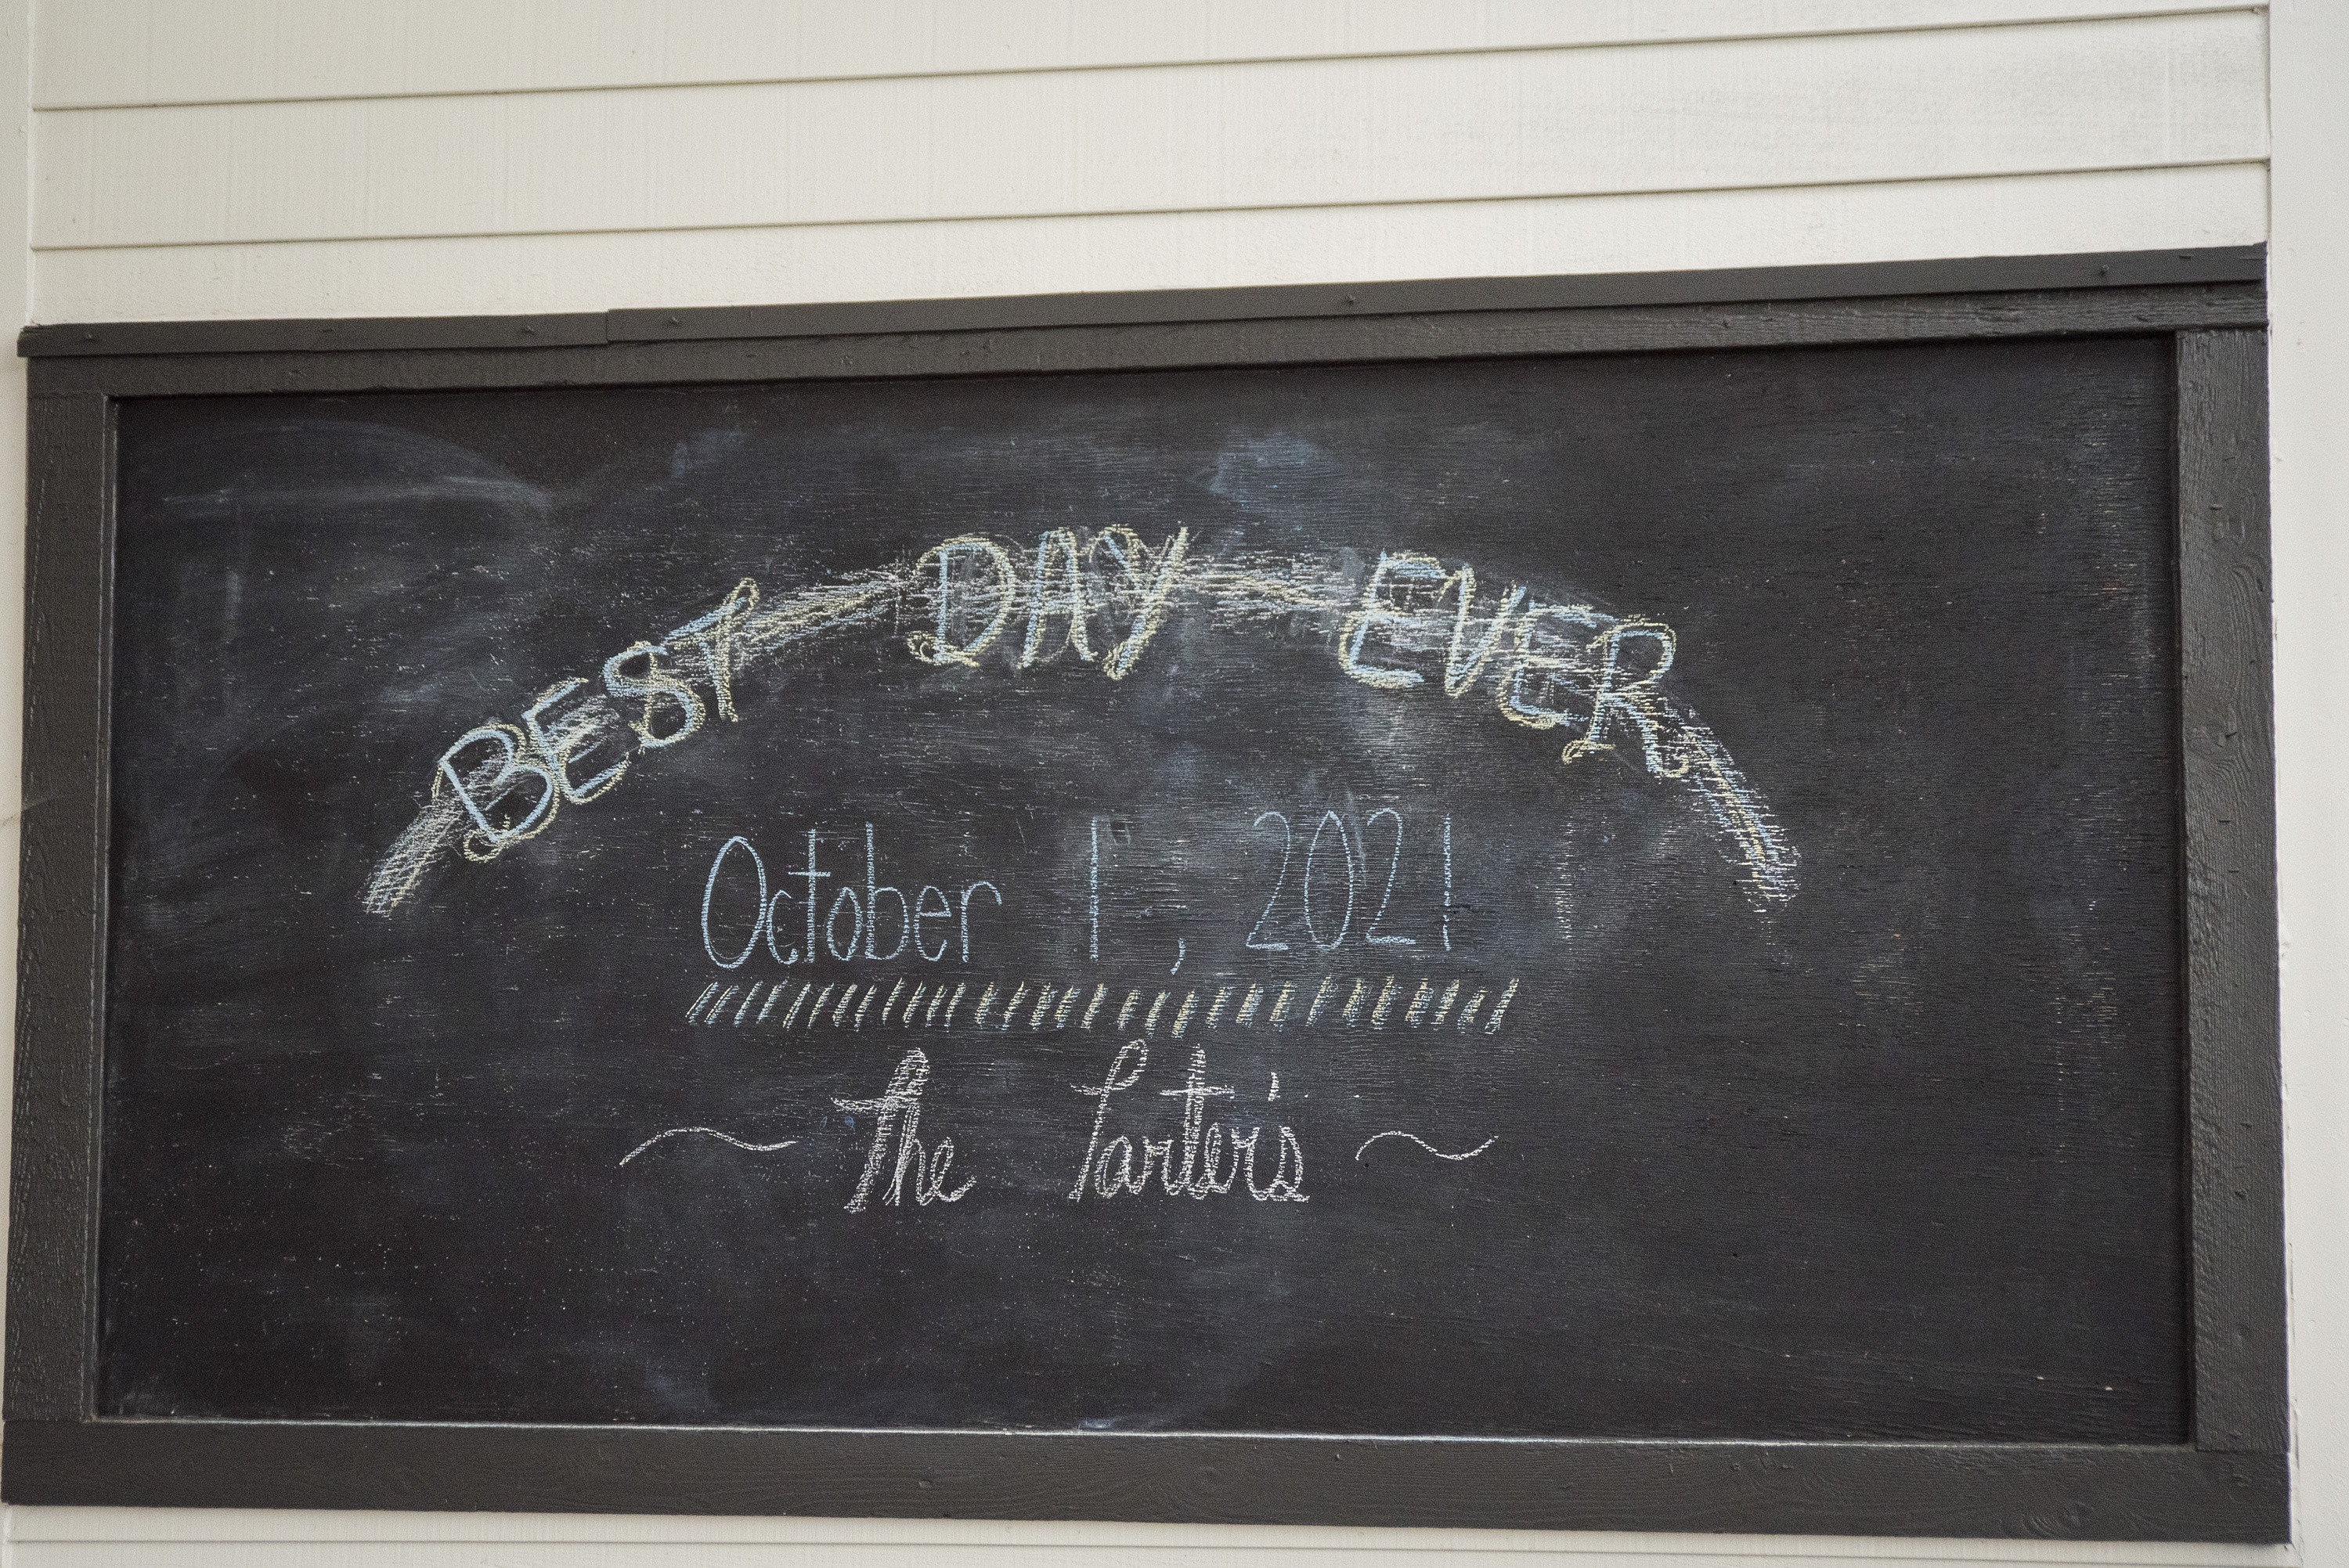 BEST DAY EVER
October 1, 2021
The